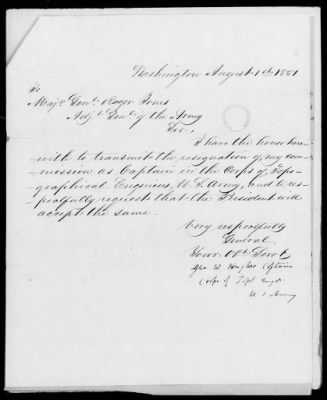 Washington August 1st 1851
To
Majr. Genl. Roger Jones
Adjt. Genl. of the Army
Sir,
I have the honor here-
with to transmit the resignation of my com-
mission as Captain in the Corps of Topo-
graphical Engineers, U. S. Army, and to res-
pectfully request that the President will
accept the same.
Very respectfully
General
Your Obt. Servt.
Geo. W. Hughes Captain
Corps of Topl. Engrs.
U S Army